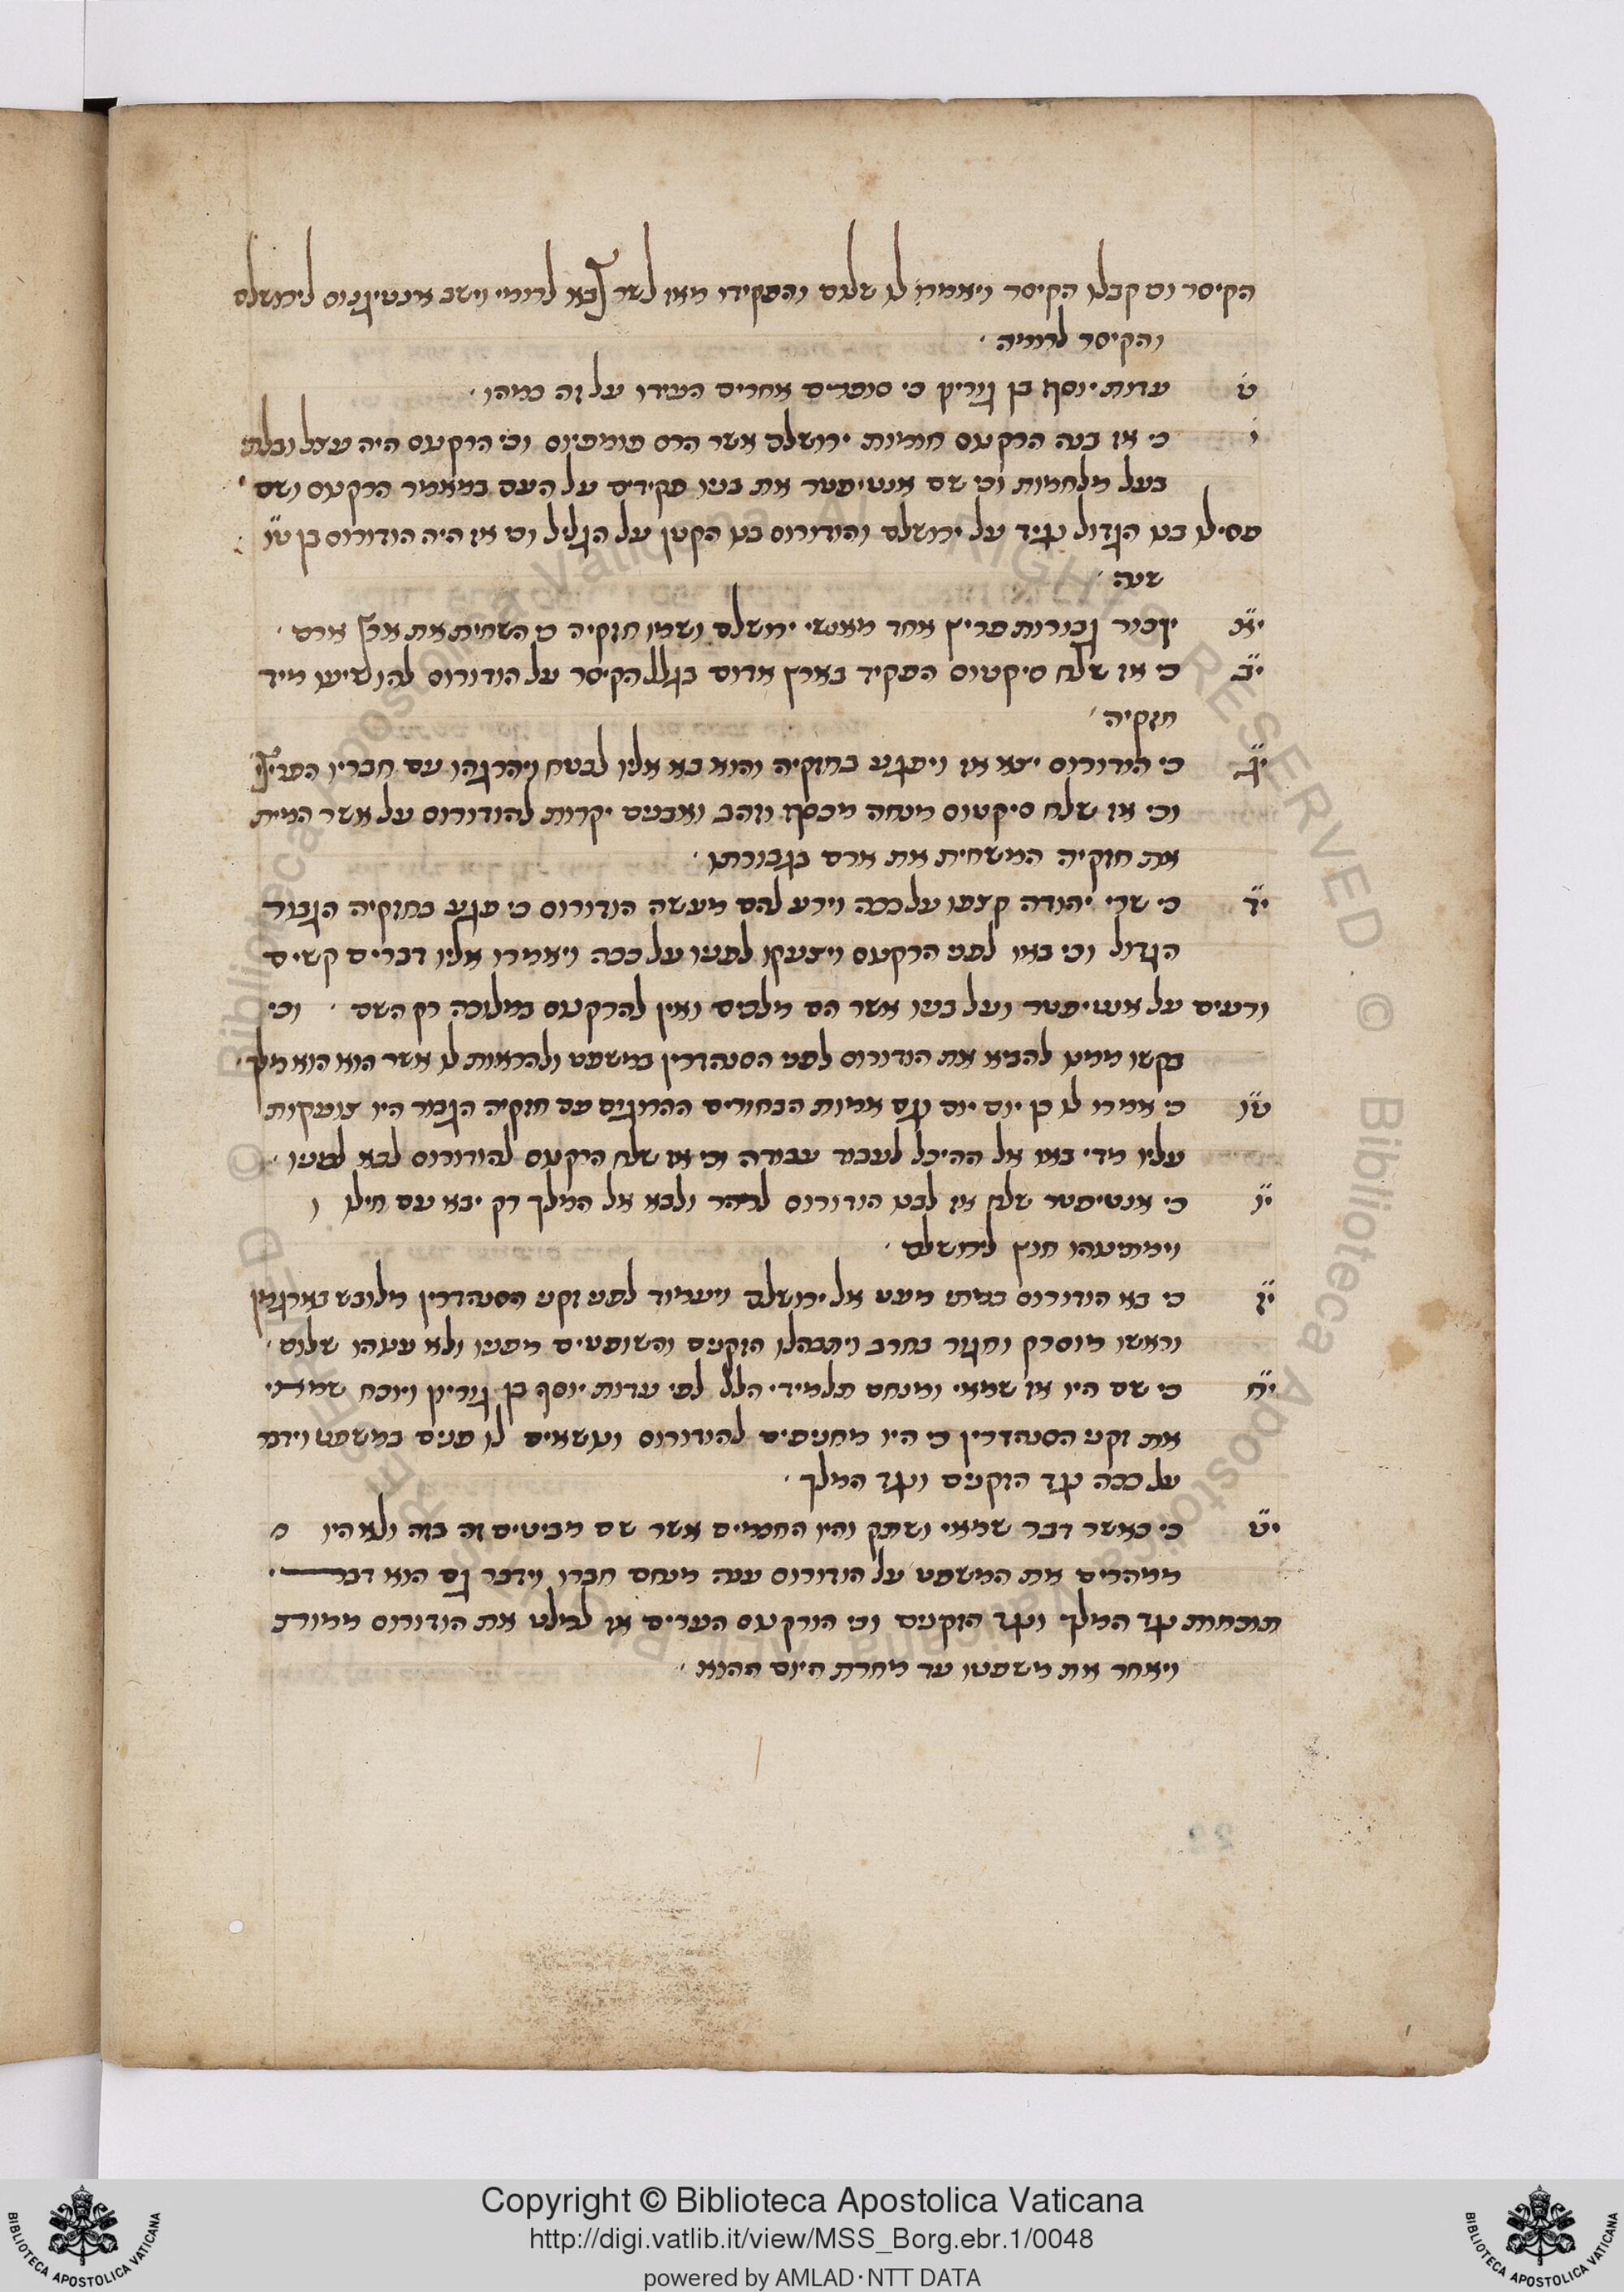 הקיסר וכי קבלו הקיסר ויאמר לו שלום והפקידו מאז לשר צבא לרומי וישב אנטיגנוס לירושלם
והקיסר לרומיה
ט עדות יוסף בן גוריון כי סופרים אחרים העידו על זה כמהו
י כי אז בנה הרקנוס חומות ירושלם אשר הרס פומפיוס וכי הרקנוס היה עצל ובלתי
בעל מלחמות וכי שם אנטיפטר את בניו פקידים על העם במאמר הרקנוס ושם
פסילו בנו הגדול נגיד על ירושלם והודורוס בנו הקטן על הגליל וכי אז היה הודורוס בן ט״ו
שנה
י״א יזכור גבורות פריץ אחד מאנשי ירושלם ושמו חזקיה כי השחית את ארץ ארם
י״ב כי אז שלח סיקטוס הפקיד בארץ אדום בגלל הקיסר על הודורוס להושיעו מיד
חזקיה
י״ג כי הודורוס יצא אז ויפגע בחזקיה והוא בא אליו לבטח ויהרגהו עם חבריו הפריצים
וכי אז שלח סיקטוס מנחה מכסף וזהב ואבנים יקרות להודורוס על אשר המית
את חזקיה המשחית את ארם בגבורתו
י״ד כי שרי יהודה קצפו על ככה וירע להם מעשה הודורוס כי פגע בחזקיה הגבור
הגדול וכי באו לפני הרקנוס ויצעקו לפניו על ככה ויאמרו אליו דברים קשים
ורעים על אנטיפטר ועל בניו אשר הם מלכים ואין להרקנוס במלוכה רק השם וכי
בקשו ממנו להביא את הודורוס לפני הסנהדרין במשפט ולהראות לו אשר הוא הוא מלך
ט״ו כי אמרו לו כן יום יום וגם אמות הבחורים ההרוגים עם חזקיה הגבור היו צועקות
עליו מדי באו אל ההיכל לעבוד עבודה וכי אז שלח הרקנוס להודורוס לבא לפניו
י״ו כי אנטיפטר שלח אז לבנו הודורוס למהר ולבא אל המלך רק יבא עם חילו
וימתינהו חוץ לירושלם
י״ז כי בא הודורוס במתי מעט אל ירושלם ויעמוד לפני זקני הסנהדרין מלובש בארגמן
וראשו מוסרק וחגור בחרב ויתבהלו הזקנים והשופטים מפניו ולא ענהו שלום
י״ח כי שם היו אז שמאי ומנחם תלמידי הלל לפי עדות יוסף בן גוריון ויוכח שמאי
את זקני הסנהדרין כי היו מחניפים להודורוס ונושאים לו פנים במשפט וידבר
על ככה נגד הזקנים ונגד המלך
י״ט כי כאשר דבר שמאי ושתק והיו החכמים אשר שם מביטים זה בזה ולא היו
ממהרים את המשפט על הודורוס ענה מנחם חברו וידבר גם הוא דברי
תוכחות נגד המלך ונגד הזקנים וכי הורקנוס הערים אז למלט את הודורוס ממות
ויאחר את משפטו עד מחרת היום ההוא
Copyright © Biblioteca Apostolica Vaticana
http://digi.vatlib.it/view/MSS_Borg.ebr.1/0048
powered by AMLAD·NTT DATA